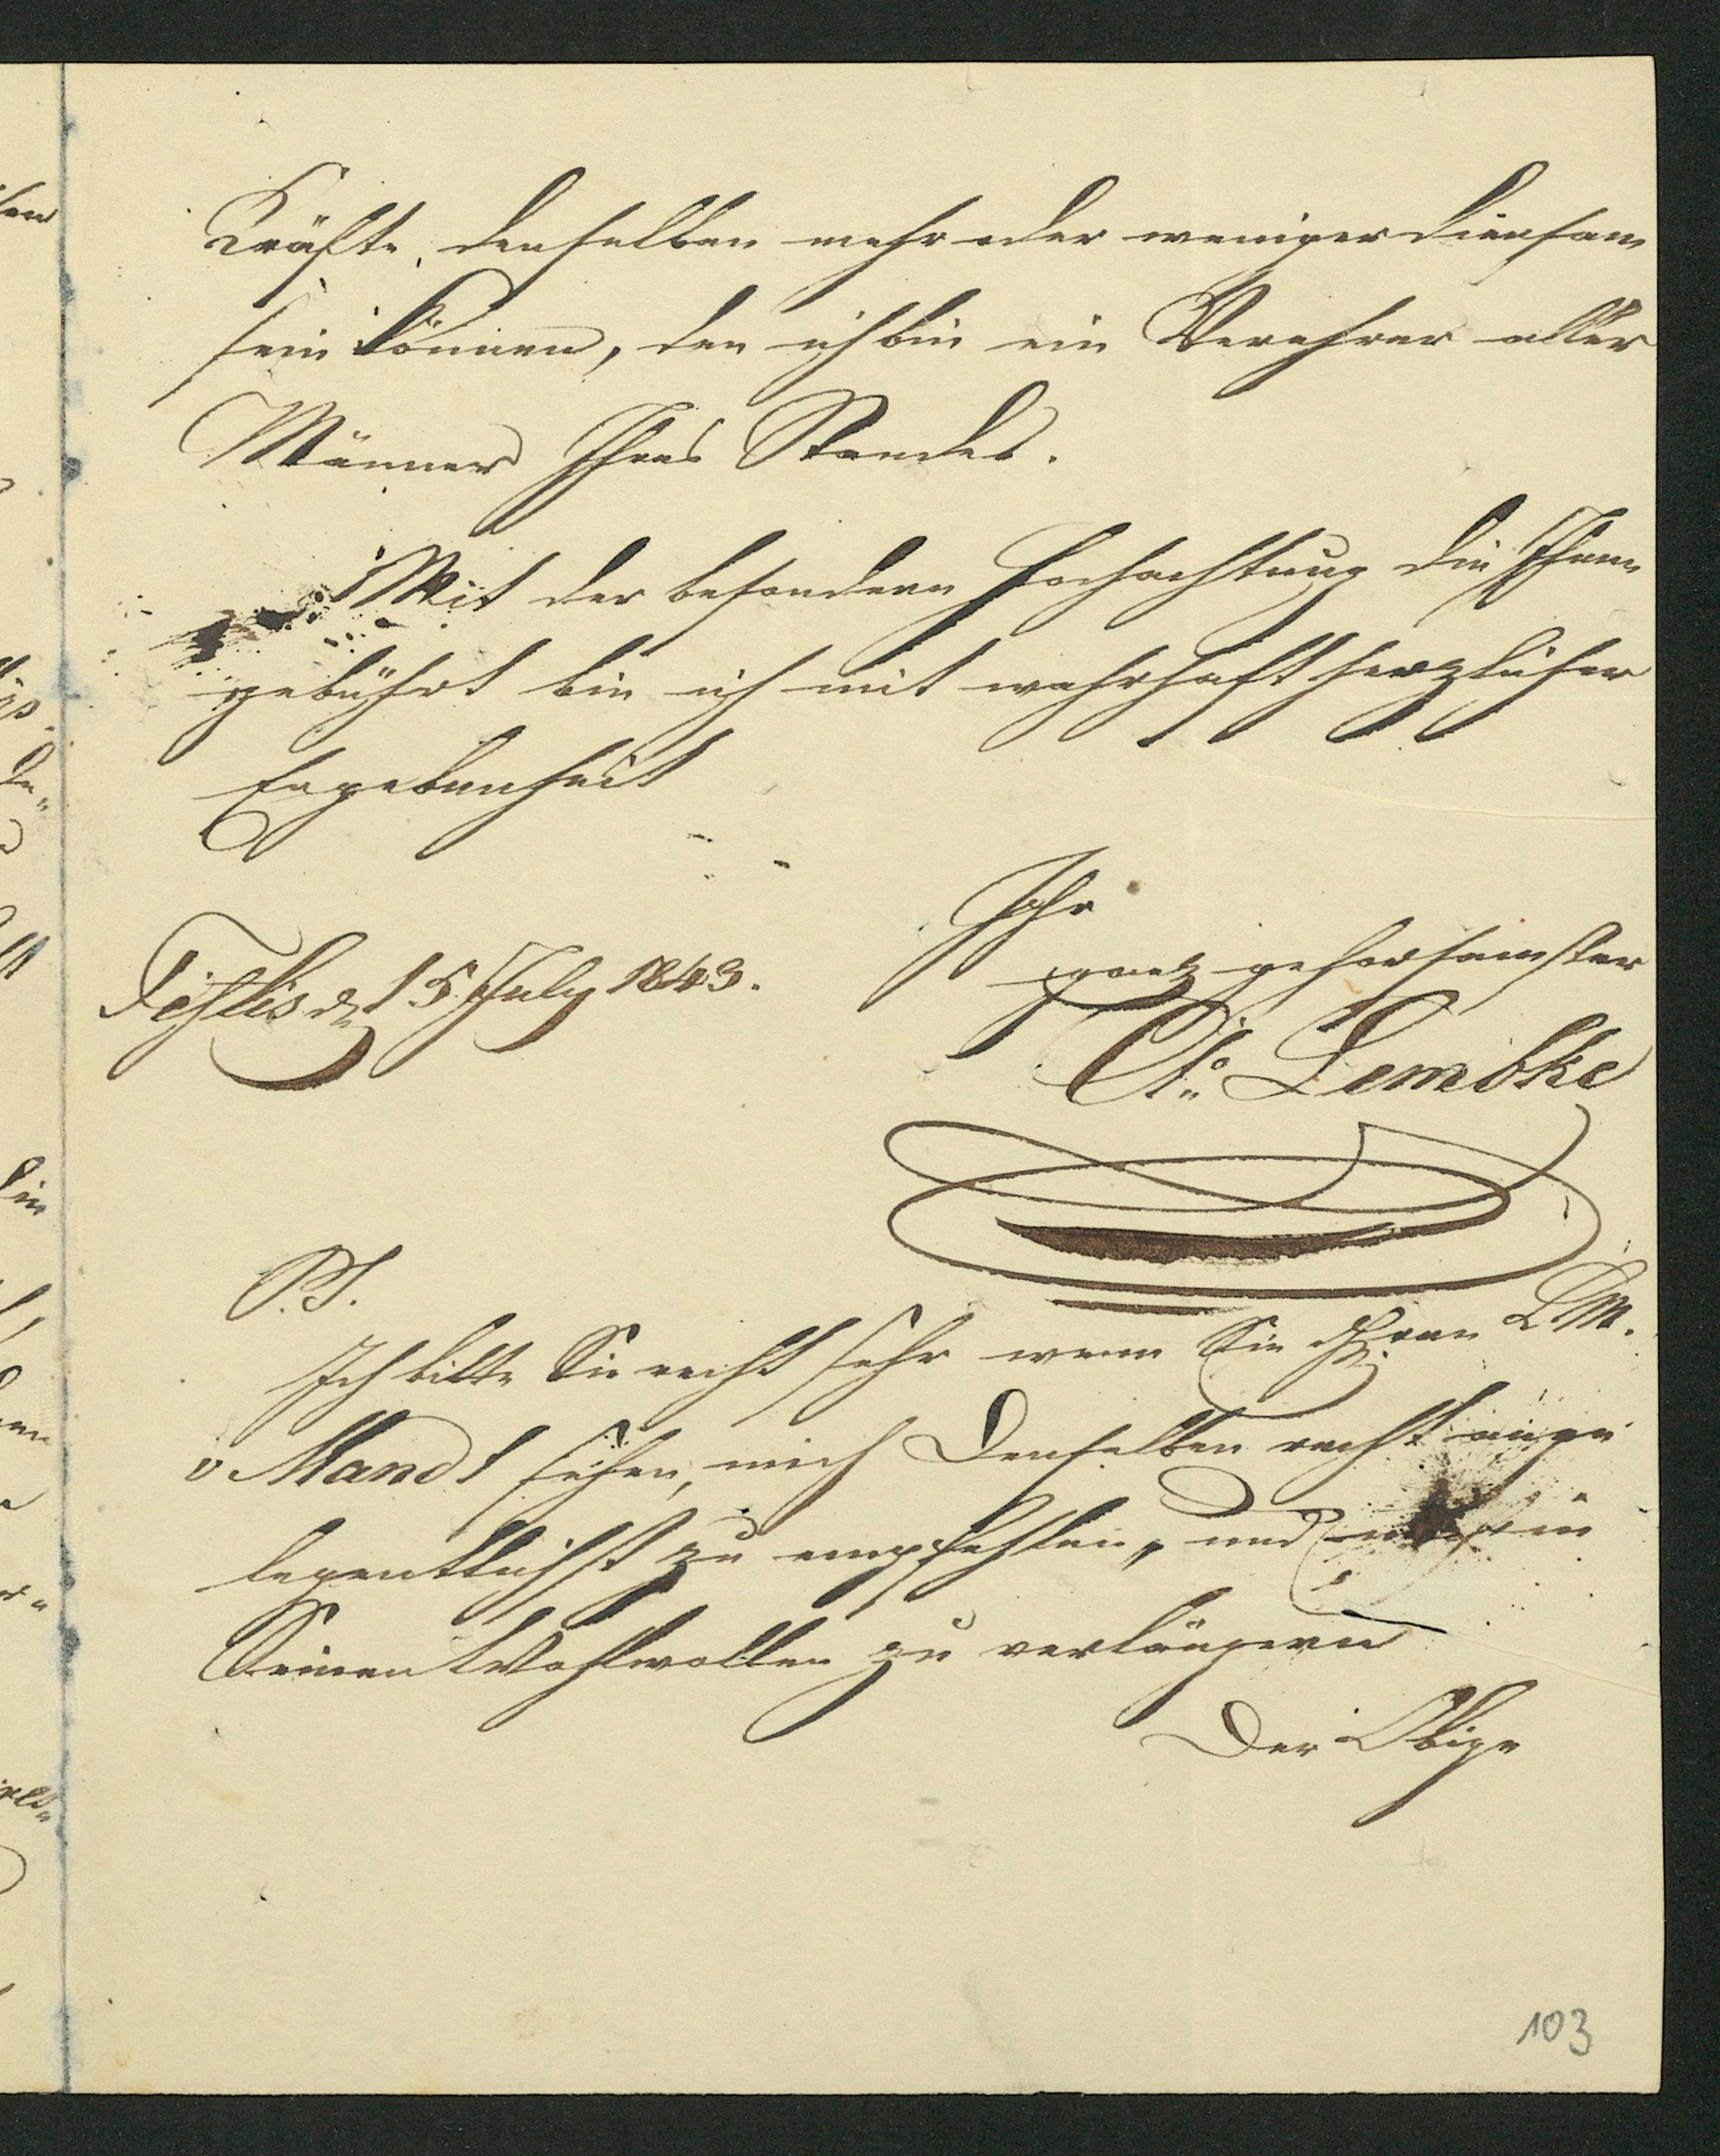 Kräfte, denselben mehr oder weniger diensam
sein können, den ich bin ein Verehrer aller
Männer Ihres Standes.
Mit der besondern Hochachtung die Ihnen
gebührt bin ich mit wahrhaft herzlicher
Ergebenheit
Ihr
ganz gehorsamster
Tiflis d 15 July 1843.
Lembke
P.S.
Ich bitte Sie recht sehr wenn Sie
v Mandt sehen, mich Denselben recht ange
legentlichst zu empfehlen, und mich in
Seinen Wohlwollen zu verlängern
Der Obige
103